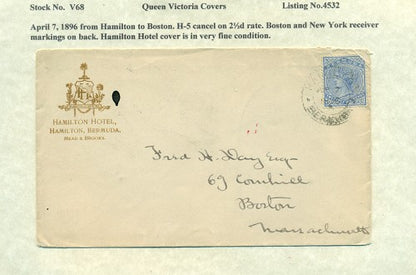 Stock No. V68 Queen Victoria Covers Listing No.4532
April 7, 1896 from Hamilton to Boston. H-5 cancel on 2½d rate. Boston and New York receiver
markings on back. Hamilton Hotel cover is in very fine condition.
HAMILTON HOTEL,
HAMILTON, BERMUDA.
MEAD & BROOKS.
Fred H. Day Esq.
69 Cornhill
Boston
Massachusetts